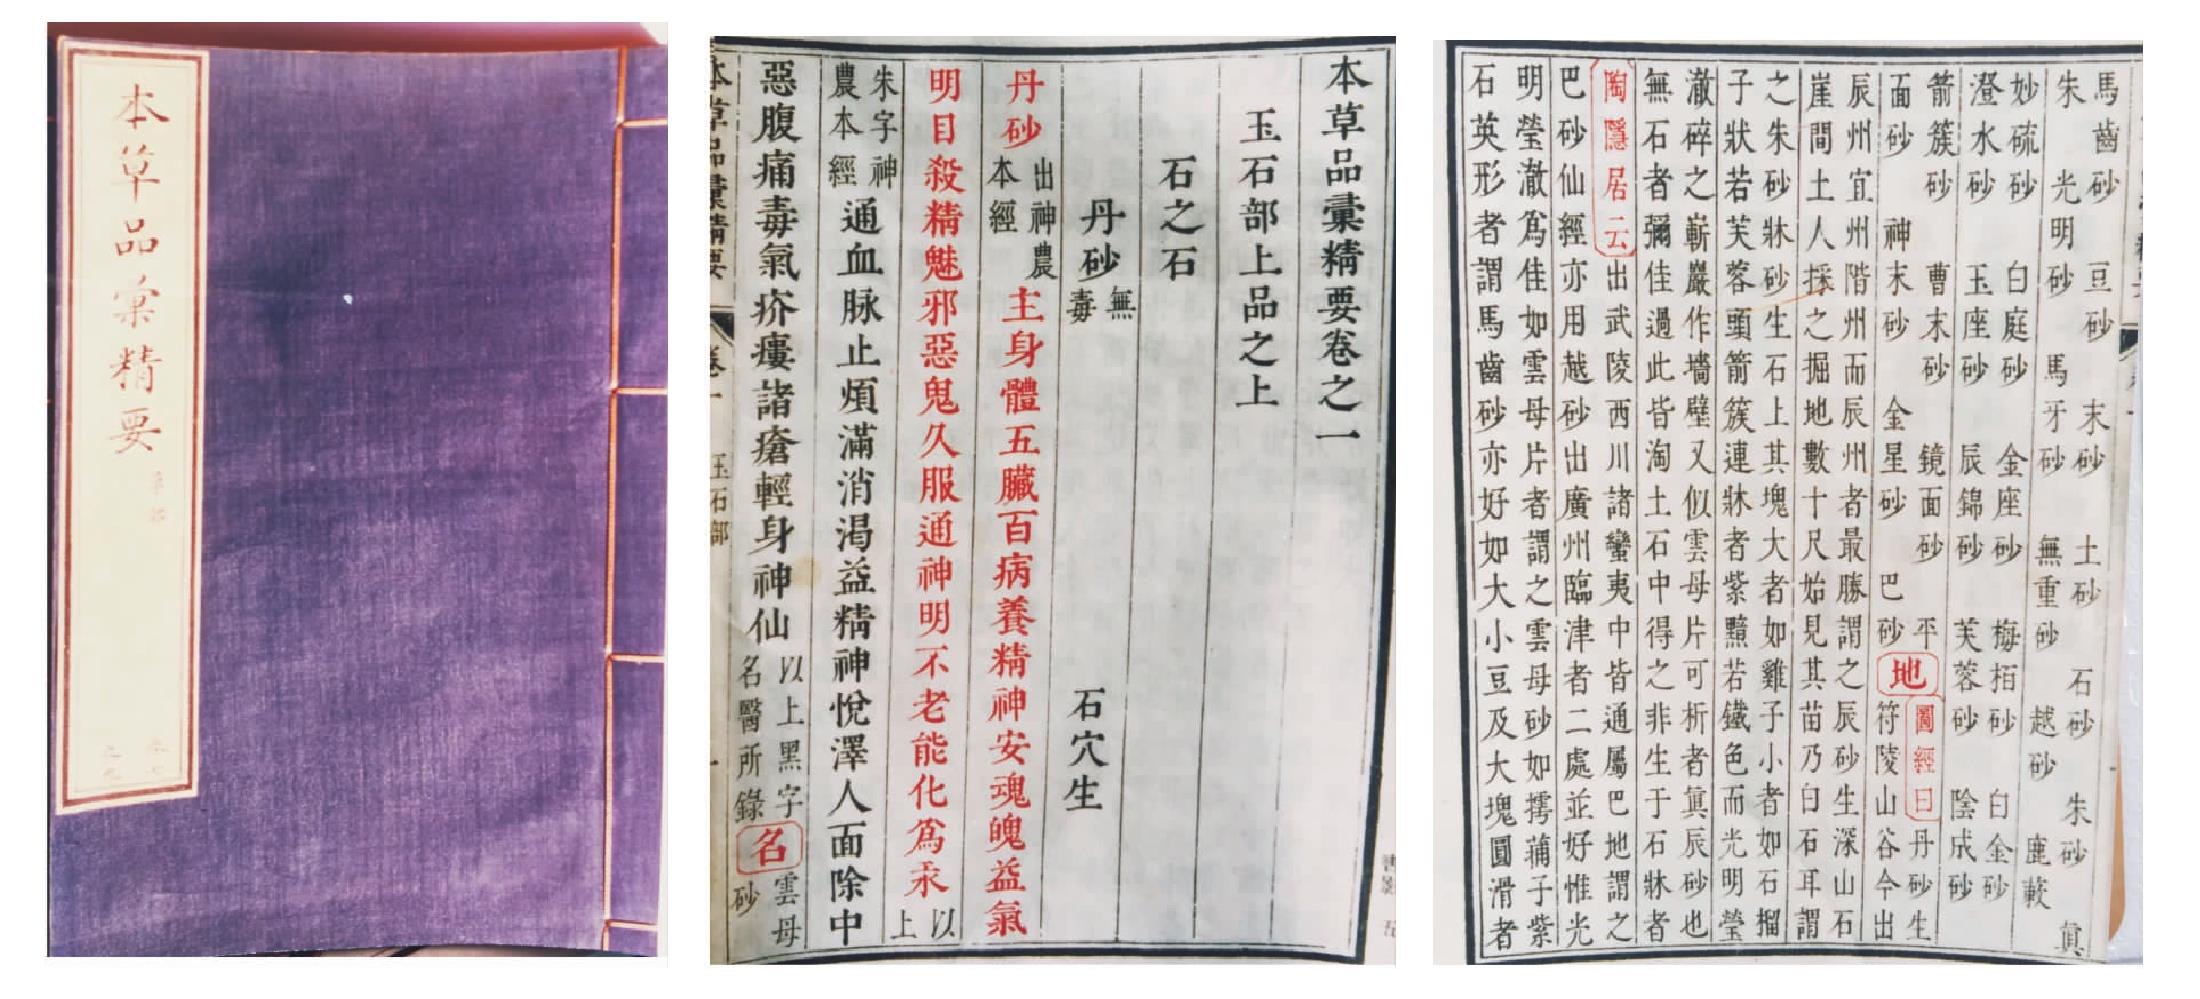 本草品彙精要
本草品彙精要卷之一
玉石部上品之上
石之石
丹砂 無毒 石穴生
丹砂 出神農本經 主身體五臟百病養精神安魂魄益氣
明目殺精魅邪惡鬼久服通神明不老能化爲汞 以上
朱字神農本經 通血脉止煩滿消渴益精神悅澤人面除中
惡腹痛毒氣疥瘻諸瘡輕身神仙 以上黑字名醫所錄 名 雲母砂
本草品彙精要 卷一 玉石部 一
馬齒砂 豆砂 末砂 土砂 石砂 朱砂 眞
朱 光明砂 馬牙砂 無重砂 越砂 鹿蔌
妙硫砂 白庭砂 金座砂 梅栢砂 白金砂
澄水砂 玉座砂 辰錦砂 芙蓉砂 陰成砂
箭簇砂 曹末砂 鏡面砂 平
面砂 神末砂 金星砂 巴砂 地 圖經曰 丹砂生
符陵山谷今出
辰州宜州階州而辰州者最勝謂之辰砂生深山石
崖間土人採之掘地數十尺始見其苗乃白石耳謂
之朱砂牀砂生石上其塊大者如雞子小者如石榴
子狀若芙蓉頭箭簇連牀者紫黯若鐵色而光明瑩
澈碎之嶄巖作墻壁又似雲母片可析者眞辰砂也
無石者彌佳過此皆淘土石中得之非生于石牀者
陶隱居云 出武陵西川諸蠻夷中皆通屬巴地謂之
巴砂仙經亦用越砂出廣州臨津者二處並好惟光
明瑩澈爲佳如雲母片者謂之雲母砂如摴蒱子紫
石英形者謂馬齒砂亦好如大小豆及大塊圓滑者